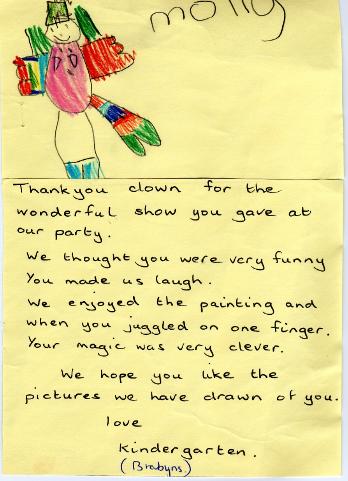 molly
Thankyou clown for the
wonderful show you gave at
our party.
We thought you were very funny
You made us laugh.
We enjoyed the painting and
when you juggled on one finger.
Your magic was very clever.
We hope you like the
pictures we have drawn of you.
love
Kindergarten.
(Brabyns)